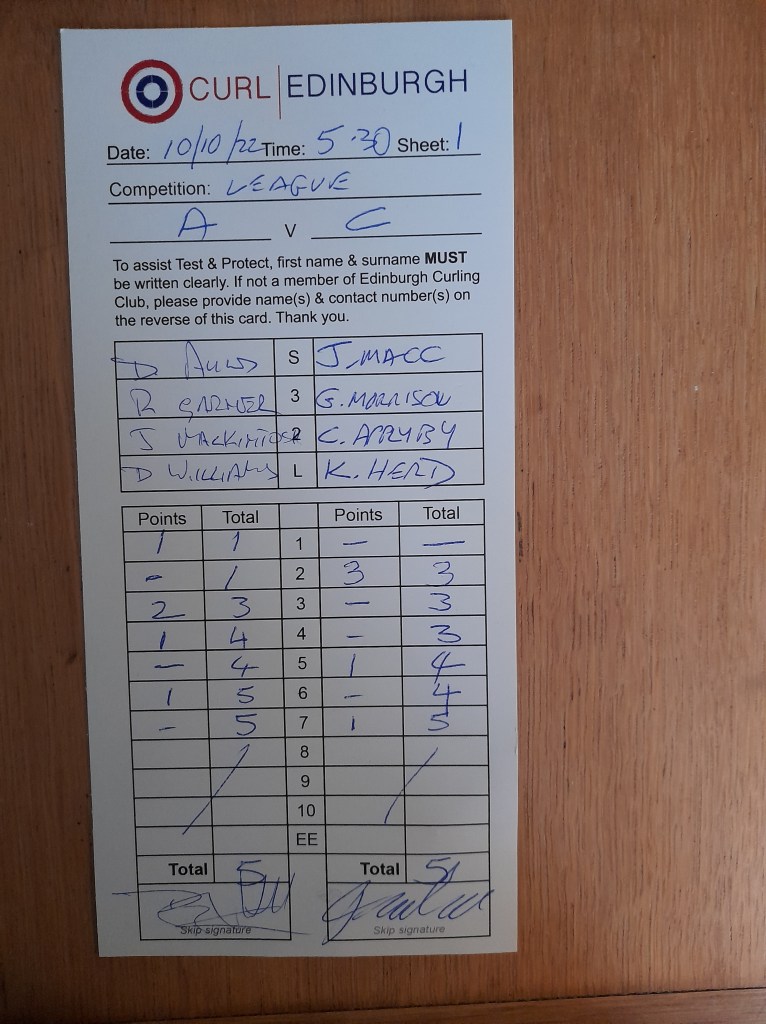 CURL | EDINBURGH
Date: 10/10/22 Time: 5.30 Sheet: 1
Competition: LEAGUE
A V C
To assist Test & Protect, first name & surname MUST
be written clearly. If not a member of Edinburgh Curling
Club, please provide name(s) & contact number(s) on
the reverse of this card. Thank you.
D S J. MACC
R GARNER 3 G. MORRISON
J MACKINTOSH 2 C.
D WILLIAMS L K. HERD
Points Total Points Total
1 1 1 — —
- 1 2 3 3
2 3 3 — 3
1 4 4 - 3
— 4 5 1 4
1 5 6 - 4
- 5 7 1 5
8
9
10
EE
Total 5 Total 5
Skip signature Skip signature